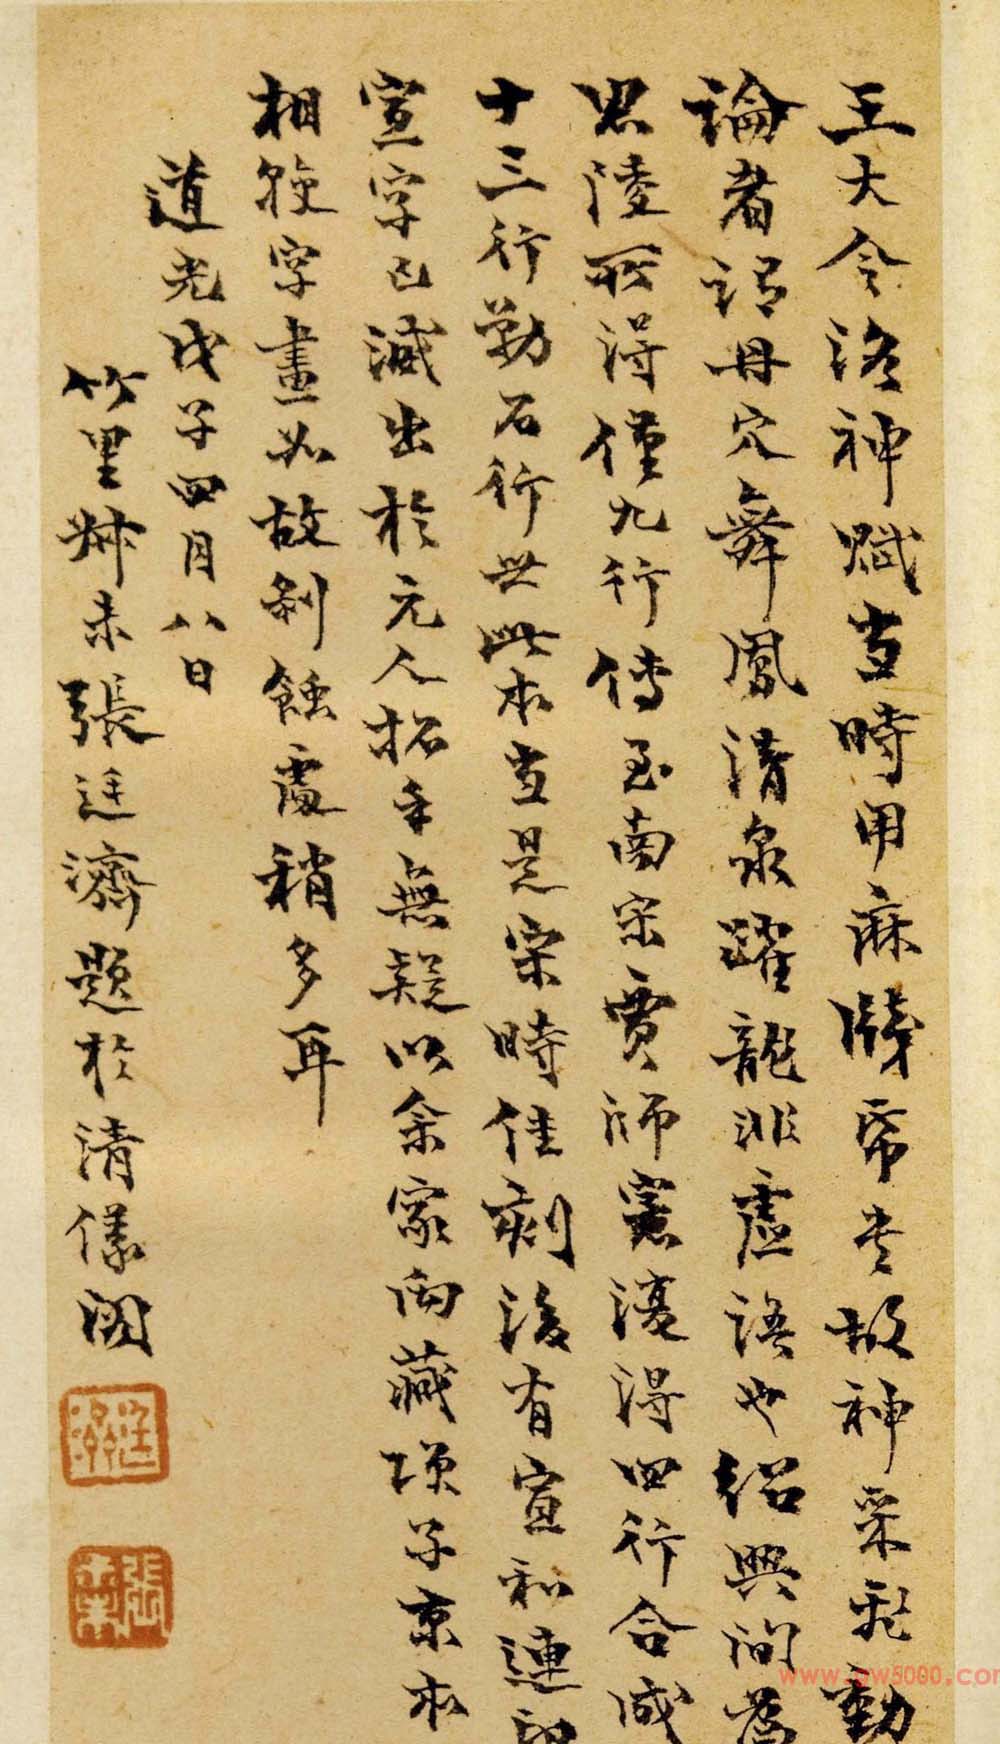 王大令洛神賦書時用麻牋帋書故神采飛動
論者謂丹穴舞鳳清泉躍龍非虛語也紹興間為
思陵所得僅九行傳至南宋賈師憲濅得四行合成
十三行勒石行世此本当是宋時佳刻後有宣和連印
宣字已減出於元人拓手無疑以余家向藏項子京本
相較字畫如故剥蝕處稍多耳
道光戊子四月八日
竹里叔未張廷濟題於清儀閣
廷濟
張叔未
www.gw5000.com